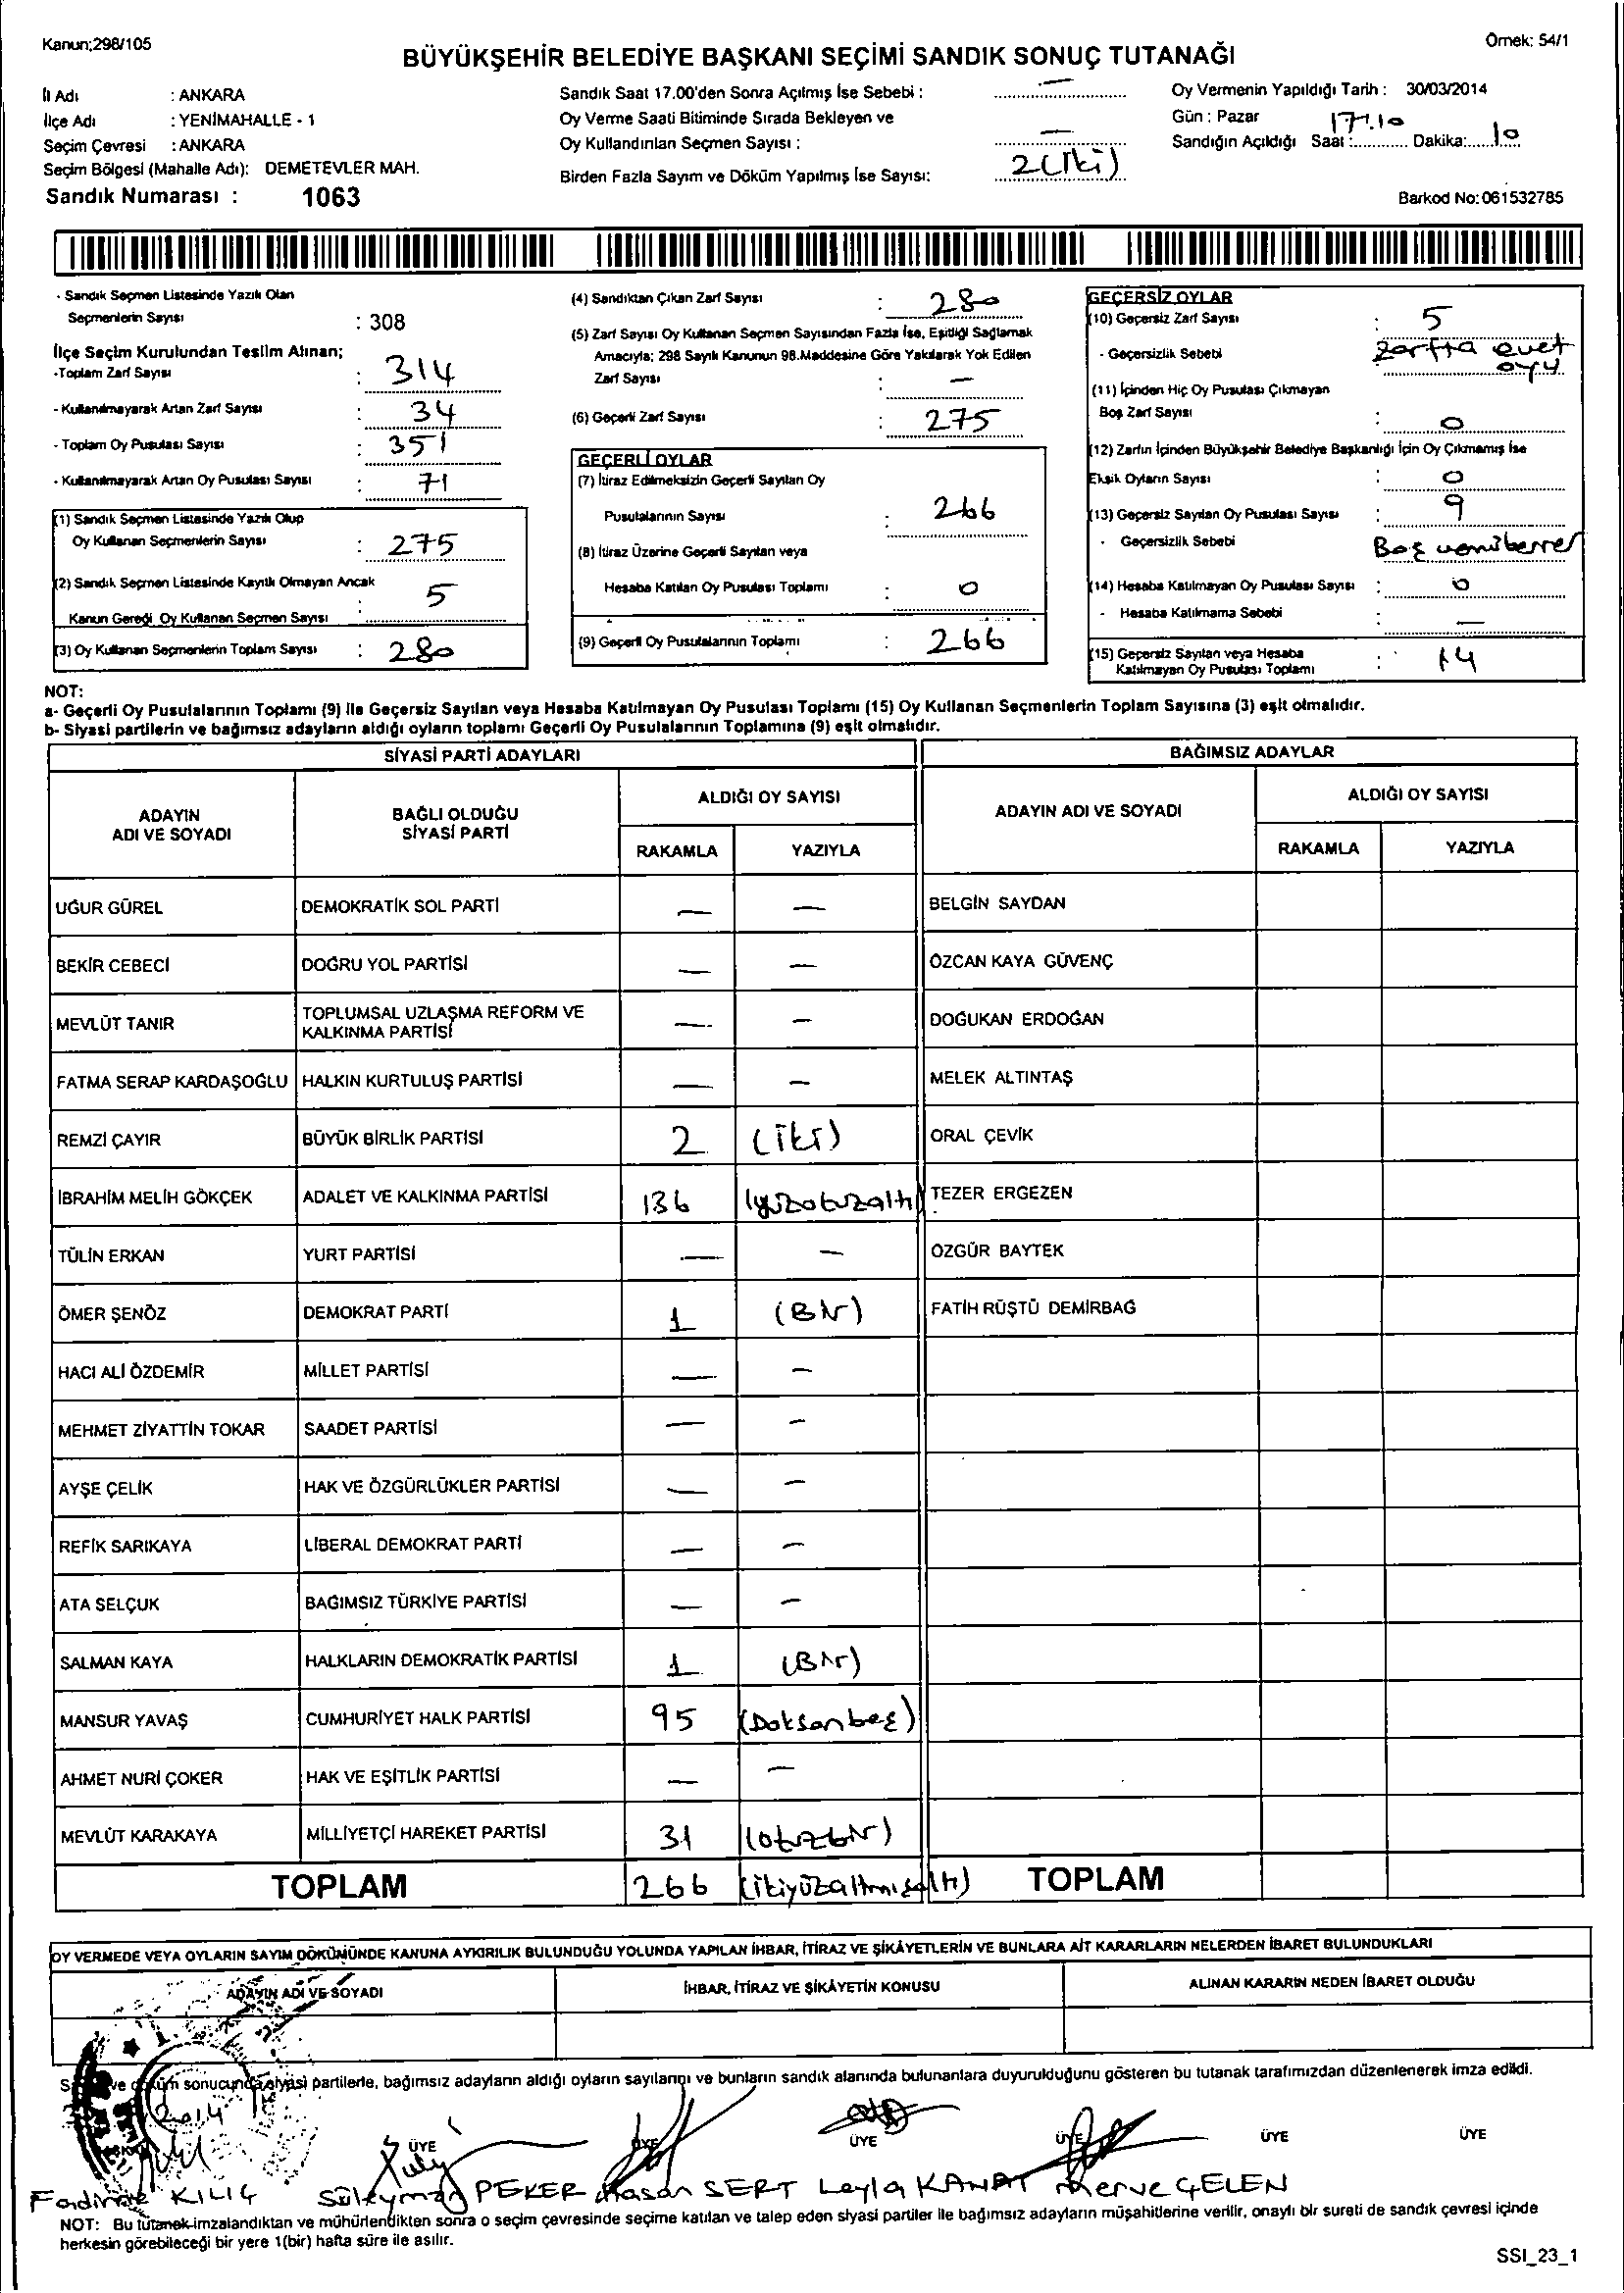 Kanun;298/105
Örnek: 54/1
BÜYÜKŞEHİR BELEDİYE BAŞKANI SEÇİMİ SANDIK SONUÇ TUTANAĞI
İl Adı : ANKARA
İlçe Adı : YENİMAHALLE - 1
Seçim Çevresi : ANKARA
Seçim Bölgesi (Mahalle Adı): DEMETEVLER MAH.
Sandık Numarası : 1063
Sandık Saat 17.00'den Sonra Açılmış İse Sebebi : —
Oy Verme Saati Bitiminde Sırada Bekleyen ve
Oy Kullandırılan Seçmen Sayısı : —
Birden Fazla Sayım ve Döküm Yapılmış İse Sayısı: 2 (iki)
Oy Vermenin Yapıldığı Tarih : 30/03/2014
Gün : Pazar
Sandığın Açıldığı Saat : 17.10 Dakika: 10
Barkod No: 061532785
- Sandık Seçmen Listesinde Yazılı Olan
Seçmenlerin Sayısı : 308
İlçe Seçim Kurulundan Teslim Alınan;
-Toplam Zarf Sayısı : 314
- Kullanılmayarak Artan Zarf Sayısı : 34
- Toplam Oy Pusulası Sayısı : 351
- Kullanılmayarak Artan Oy Pusulası Sayısı : 71
(1) Sandık Seçmen Listesinde Yazılı Olup
Oy Kullanan Seçmenlerin Sayısı : 275
(2) Sandık Seçmen Listesinde Kayıtlı Olmayan Ancak
Kanun Gereği Oy Kullanan Seçmen Sayısı : 5
(3) Oy Kullanan Seçmenlerin Toplam Sayısı : 280
(4) Sandıktan Çıkan Zarf Sayısı : 280
(5) Zarf Sayısı Oy Kullanan Seçmen Sayısından Fazla İse, Eşitliği Sağlamak
Amacıyla; 298 Sayılı Kanunun 98.Maddesine Göre Yakılarak Yok Edilen
Zarf Sayısı : —
(6) Geçerli Zarf Sayısı : 275
GEÇERLİ OYLAR
(7) İtiraz Edilmeksizin Geçerli Sayılan Oy
Pusulalarının Sayısı : 266
(8) İtiraz Üzerine Geçerli Sayılan veya
Hesaba Katılan Oy Pusulası Toplamı : 0
(9) Geçerli Oy Pusulalarının Toplamı : 266
GEÇERSİZ OYLAR
(10) Geçersiz Zarf Sayısı : 5
- Geçersizlik Sebebi : zarfta evet
oyu
(11) İçinden Hiç Oy Pusulası Çıkmayan
Boş Zarf Sayısı : 0
(12) Zarfın İçinden Büyükşehir Belediye Başkanlığı İçin Oy Çıkmamış İse
Eksik Oyların Sayısı : 0
(13) Geçersiz Sayılan Oy Pusulası Sayısı : 9
- Geçersizlik Sebebi : Boş
(14) Hesaba Katılmayan Oy Pusulası Sayısı : 0
- Hesaba Katılmama Sebebi : —
(15) Geçersiz Sayılan veya Hesaba
Katılmayan Oy Pusulası Toplamı : 14
NOT:
a- Geçerli Oy Pusulalarının Toplamı (9) ile Geçersiz Sayılan veya Hesaba Katılmayan Oy Pusulası Toplamı (15) Oy Kullanan Seçmenlerin Toplam Sayısına (3) eşit olmalıdır.
b- Siyasi partilerin ve bağımsız adayların aldığı oyların toplamı Geçerli Oy Pusulalarının Toplamına (9) eşit olmalıdır.
SİYASİ PARTİ ADAYLARI BAĞIMSIZ ADAYLAR
ADAYIN ADI VE SOYADI BAĞLI OLDUĞU SİYASİ PARTİ ALDIĞI OY SAYISI ADAYIN ADI VE SOYADI ALDIĞI OY SAYISI
RAKAMLA YAZIYLA RAKAMLA YAZIYLA
UĞUR GÜREL DEMOKRATİK SOL PARTİ — — BELGİN SAYDAN
BEKİR CEBECİ DOĞRU YOL PARTİSİ — — ÖZCAN KAYA GÜVENÇ
MEVLÜT TANIR TOPLUMSAL UZLAŞMA REFORM VE KALKINMA PARTİSİ — — DOĞUKAN ERDOĞAN
FATMA SERAP KARDAŞOĞLU HALKIN KURTULUŞ PARTİSİ — — MELEK ALTINTAŞ
REMZİ ÇAYIR BÜYÜK BİRLİK PARTİSİ 2 (iki) ORAL ÇEVİK
İBRAHİM MELİH GÖKÇEK ADALET VE KALKINMA PARTİSİ 136 (yüzotuzaltı) TEZER ERGEZEN
TÜLİN ERKAN YURT PARTİSİ — — ÖZGÜR BAYTEK
ÖMER ŞENÖZ DEMOKRAT PARTİ 1 (Bir) FATİH RÜŞTÜ DEMİRBAĞ
HACI ALİ ÖZDEMİR MİLLET PARTİSİ — —
MEHMET ZİYATTİN TOKAR SAADET PARTİSİ — —
AYŞE ÇELİK HAK VE ÖZGÜRLÜKLER PARTİSİ — —
REFİK SARIKAYA LİBERAL DEMOKRAT PARTİ — —
ATA SELÇUK BAĞIMSIZ TÜRKİYE PARTİSİ — —
SALMAN KAYA HALKLARIN DEMOKRATİK PARTİSİ 1 (Bir)
MANSUR YAVAŞ CUMHURİYET HALK PARTİSİ 95 (Doksanbeş)
AHMET NURİ ÇOKER HAK VE EŞİTLİK PARTİSİ — —
MEVLÜT KARAKAYA MİLLİYETÇİ HAREKET PARTİSİ 31 (otuzbir)
TOPLAM 266 (ikiyüzaltmışaltı) TOPLAM
OY VERMEDE VEYA OYLARIN SAYIM DÖKÜMÜNDE KANUNA AYKIRILIK BULUNDUĞU YOLUNDA YAPILAN İHBAR, İTİRAZ VE ŞİKÂYETLERİN VE BUNLARA AİT KARARLARIN NELERDEN İBARET BULUNDUKLARI
ADAYIN ADI VE SOYADI İHBAR, İTİRAZ VE ŞİKÂYETİN KONUSU ALINAN KARARIN NEDEN İBARET OLDUĞU
ve döküm sonucunda siyasi partilerle, bağımsız adayların aldığı oyların sayılarını ve bunların sandık alanında bulunanlara duyurulduğunu gösteren bu tutanak tarafımızdan düzenlenerek imza edildi.
2014
ÜYE ÜYE ÜYE ÜYE ÜYE ÜYE
Fadime KILIÇ Süleyman PEKER Hasan SERT Leyla KANAT Merve GELEN
NOT: Bu tutanak imzalandıktan ve mühürlendikten sonra o seçim çevresinde seçime katılan ve talep eden siyasi partiler ile bağımsız adayların müşahitlerine verilir, onaylı bir sureti de sandık çevresi içinde
herkesin görebileceği bir yere 1(bir) hafta süre ile asılır.
SSI_23_1